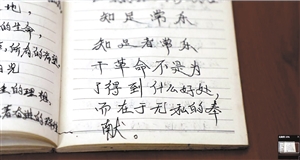 地，
的生命，
所有的
光
的理想，
知足常乐
知足者常乐
干革命不是为
了得到什么好处，
而在于无私的奉
献。